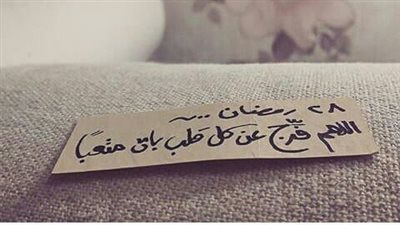 ٢٨ رمضان ...
اللهم فرّج عن كل قلب بات متعبًا